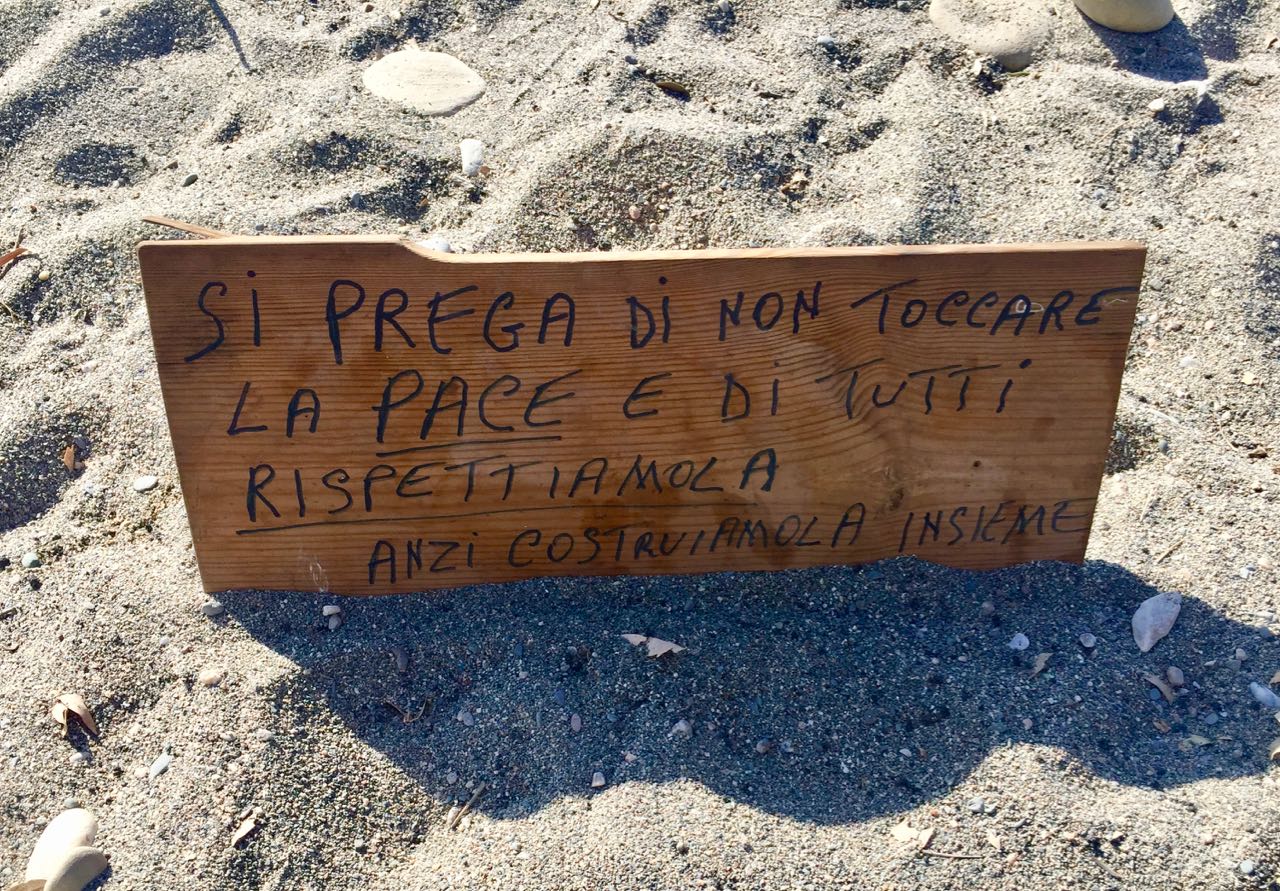 Si PREGA Di NON TOCCARE
LA PACE E Di TUTTi
RISPETTIAMOLA
ANZi COSTRUIAMOLA INSIEME